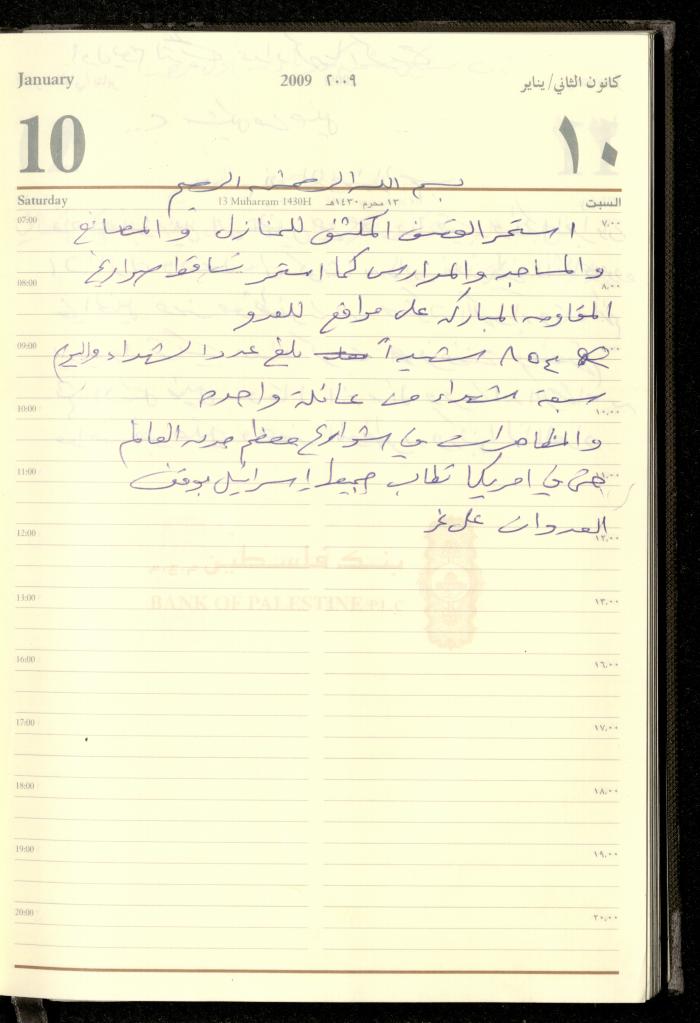 January 2009 ٢٠٠٩ كانون الثاني/يناير
10 ١٠
بسم الله الرحمن الرحيم
Saturday 13 Muharram 1430H ١٣ محرم ١٤٣٠هـ السبت
07:00 استمر القصف المكثف للمنازل و المصانع ٧,٠٠
والمساجد والمدارس كما استمر تساقط صواريخ
08:00 ٨,٠٠
المقاومه المباركه على مواقع للعدو
09:00 ٨٥٤ شهيداً بلغ عدد الشهداء واليوم
سبعة شهداء من عائلة واحده
10:00 ١٠,٠٠
والمظاهرات في شوارع معظم مدن العالم
11:00 حتى في امريكا تطالب جميعا إسرائيل بوقف
العدوان على غز
12:00 ١٢,٠٠
بنك فلسطين
13:00 BANK OF PALESTINE PLC ١٣,٠٠
16:00 ١٦,٠٠
17:00 ١٧,٠٠
18:00 ١٨,٠٠
19:00 ١٩,٠٠
20:00 ٢٠,٠٠